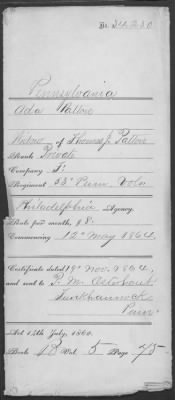 No. 34,230
Pennsylvania
Ada Pattow
Widow of Thomas J. Pattow
Rank Private
Company I:
Regiment 53" Penn. Vols
Philadelphia Agency.
Rate per month, $8:
Commencing 12" May 1864.
Certificate dated 19" Nov. 1864,
and sent to P. M. Osterhout,
Tunkhannock
Penn.
Act 14th July, 1862.
Book B Vol. 5 Page 75